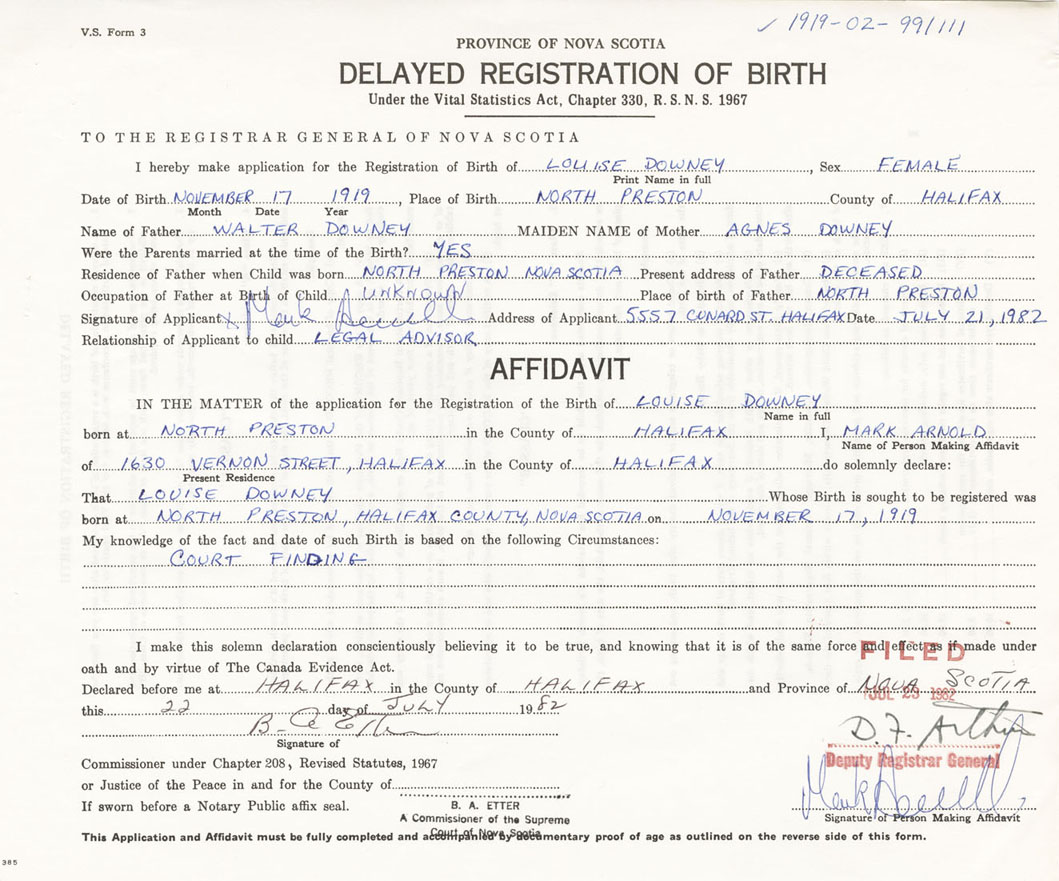 V.S. Form 3
✓ 1919-02-99/111
PROVINCE OF NOVA SCOTIA
DELAYED REGISTRATION OF BIRTH
Under the Vital Statistics Act, Chapter 330, R. S. N. S. 1967
TO THE REGISTRAR GENERAL OF NOVA SCOTIA
I hereby make application for the Registration of Birth of LOUISE DOWNEY, Sex FEMALE
Print Name in full
Date of Birth NOVEMBER 17 1919, Place of Birth NORTH PRESTON County of HALIFAX
Month Date Year
Name of Father WALTER DOWNEY MAIDEN NAME of Mother AGNES DOWNEY
Were the Parents married at the time of the Birth? YES
Residence of Father when Child was born NORTH PRESTON NOVA SCOTIA Present address of Father DECEASED
Occupation of Father at Birth of Child UNKNOWN Place of birth of Father NORTH PRESTON
Signature of Applicant X Mark Address of Applicant 5557 CONARD ST. HALIFAX Date JULY 21, 1982
Relationship of Applicant to child LEGAL ADVISOR
AFFIDAVIT
IN THE MATTER of the application for the Registration of the Birth of LOUISE DOWNEY
Name in full
born at NORTH PRESTON in the County of HALIFAX I, MARK ARNOLD
Name of Person Making Affidavit
of 1630 VERNON STREET, HALIFAX in the County of HALIFAX do solemnly declare:
Present Residence
That LOUISE DOWNEY Whose Birth is sought to be registered was
born at NORTH PRESTON, HALIFAX COUNTY, NOVA SCOTIA on NOVEMBER 17, 1919
My knowledge of the fact and date of such Birth is based on the following Circumstances:
COURT FINDING
I make this solemn declaration conscientiously believing it to be true, and knowing that it is of the same force and effect as if made under
oath and by virtue of The Canada Evidence Act.
FILED
Declared before me at HALIFAX in the County of HALIFAX and Province of NOVA SCOTIA
JUL 23 1982
this 22 day of JULY 1982
B. A. Etter
D. F. Arthur
Signature of
Deputy Registrar General
Commissioner under Chapter 208, Revised Statutes, 1967
or Justice of the Peace in and for the County of
Mark
If sworn before a Notary Public affix seal.
B. A. ETTER
A Commissioner of the Supreme
Court of Nova Scotia
Signature of Person Making Affidavit
This Application and Affidavit must be fully completed and accompanied by documentary proof of age as outlined on the reverse side of this form.
385